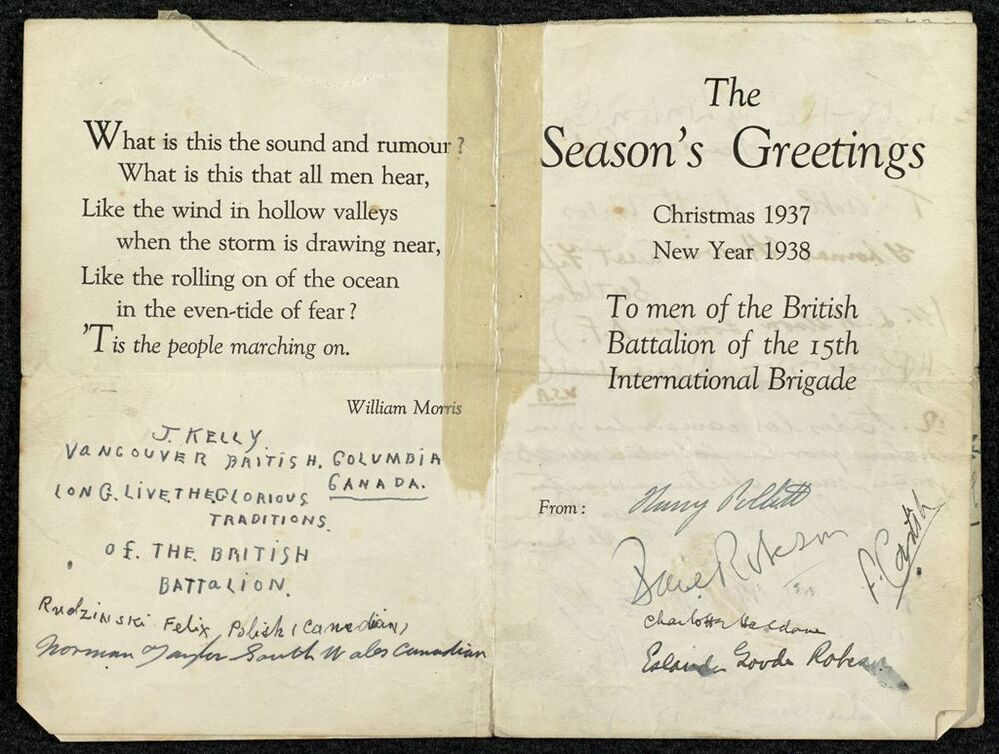 What is this the sound and rumour?
What is this that all men hear,
Like the wind in hollow valleys
when the storm is drawing near,
Like the rolling on of the ocean
in the even-tide of fear?
'Tis the people marching on.
William Morris
J. KELLY.
VANCOUVER BRITISH. COLUMBIA
CANADA.
LONG. LIVE THE GLORIOUS
TRADITIONS.
OF. THE BRITISH
BATTALION.
Rudzinski Felix Polish (Canadian)
Norman Taylor South Wales Canadian
The
Season's Greetings
Christmas 1937
New Year 1938
To men of the British
Battalion of the 15th
International Brigade
From:
Harry Pollitt
Robeson
Charlotte Haldane
Eslanda Goode Robeson